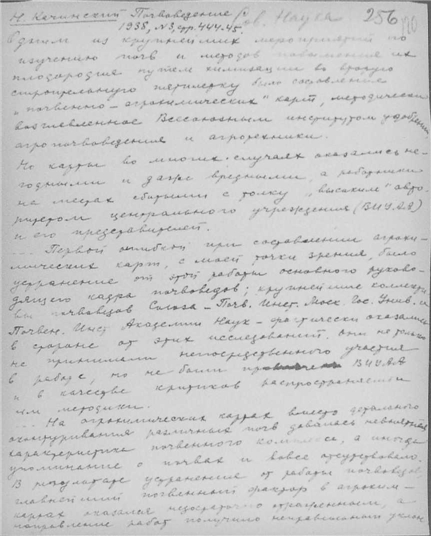 Н. Качинский Почвоведение
1938, №3, стр. 444-45.
256
Одним из крупнейших мероприятий по
изучению почв и методов повышения их
плодородия путем химизации во вторую
строительную пятилетку было составление
"почвенно-агрохимических" карт, методически
возглавленное Всесоюзным институтом удобрений
агропочвоведения и агротехники.
Но карты во многих случаях оказались не-
годными и даже вредными, а работники
на местах сбитыми с толку "высоким" авто-
ритетом центрального учреждения (ВИУАА)
и его представителей.
... Первой ошибкой при составлении агрохи-
мических карт, с моей точки зрения, было
устранение от этой работы основного руково-
дящего кадра почвоведов; крупнейшие коллекти-
вы почвоведов Союза - Почв. Инст. Моск. Гос. Унив. и
Почвен. Инст. Академии Наук - фактически оказались
в стороне от этих исследований. Они не только
не принимали непосредственного участия
в работе, но не были ВИУАА
и в качестве критиков распространяемой
им методики.
... На агрохимических картах вместо детального
оконтуривания различных почв давалась невнятная
характеристика почвенного комплекса, а иногда
упоминание о почвах и вовсе отсутствовало.
В результате устранения от работы почвоведов
главнейший почвенный фактор в агрохим-
картах оказался недостаточно отраженным, а
направление работ получило неправильный уклон